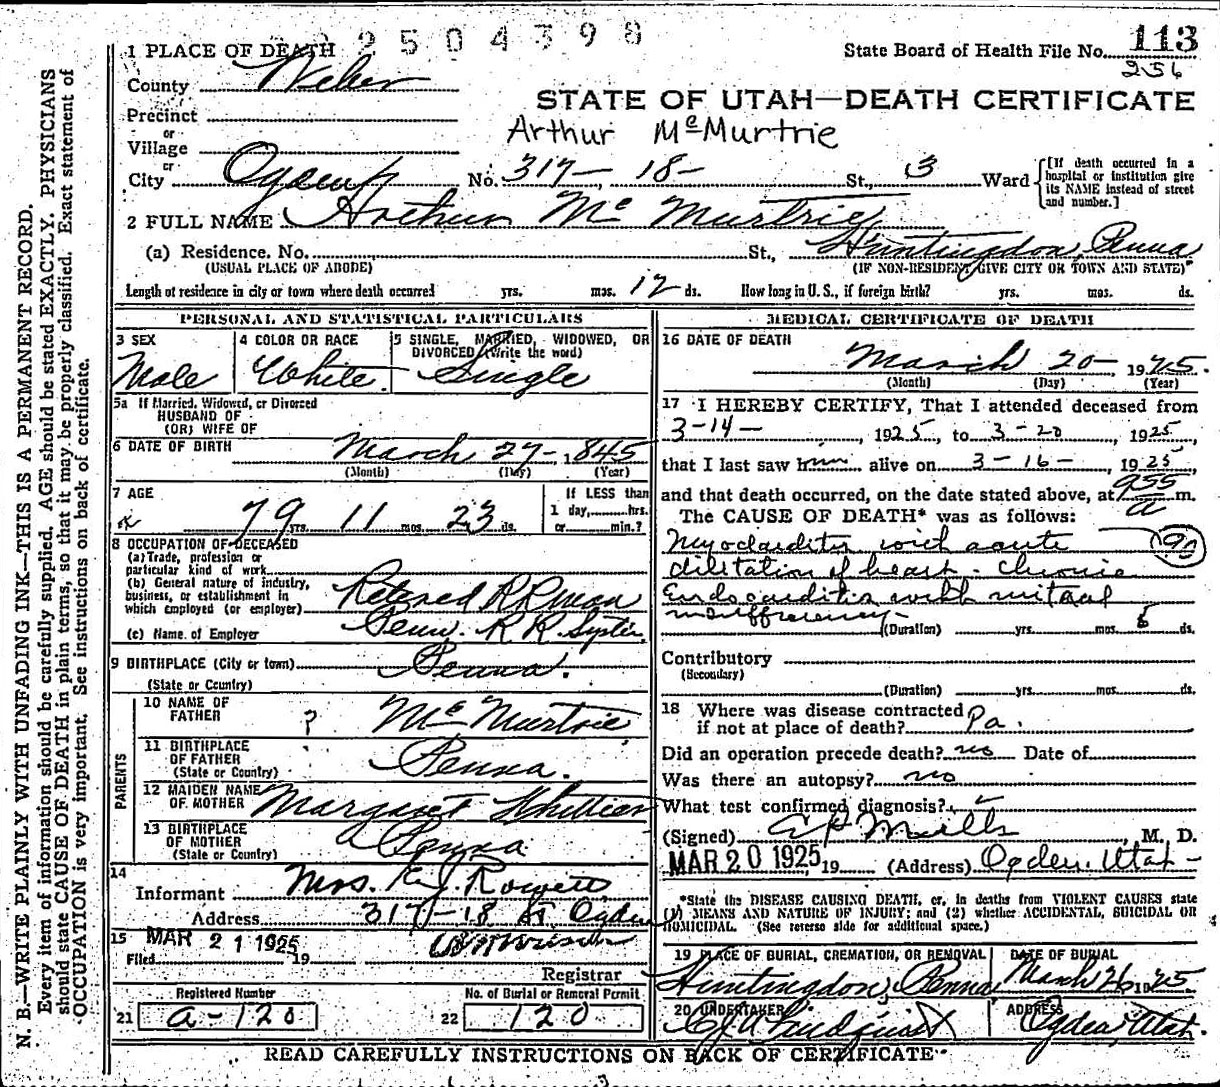 2504398
1 PLACE OF DEATH
State Board of Health File No. 113
256
County Weber
STATE OF UTAH—DEATH CERTIFICATE
Precinct
or
Village
Arthur McMurtrie
or
City Ogden No. 317— 18— St., 3 Ward
[If death occurred in a hospital or institution give its NAME instead of street and number.]
2 FULL NAME Arthur McMurtrie
(a) Residence. No. St., Huntingdon, Penna
(USUAL PLACE OF ABODE) (IF NON-RESIDENT GIVE CITY OR TOWN AND STATE)*
Length of residence in city or town where death occurred yrs. mos. 12 ds. How long in U. S., if foreign birth? yrs. mos. ds.
PERSONAL AND STATISTICAL PARTICULARS
3 SEX
Male
4 COLOR OR RACE
White.
5 SINGLE, MARRIED, WIDOWED, OR
DIVORCED (Write the word)
Single
5a If Married, Widowed, or Divorced
HUSBAND OF
(OR) WIFE OF
6 DATE OF BIRTH March 27— 1845
(Month) (Day) (Year)
7 AGE
79 yrs. 11 mos. 23 ds.
If LESS than
1 day,......hrs.
or......min.?
8 OCCUPATION OF DECEASED
(a) Trade, profession or
particular kind of work
(b) General nature of industry,
business, or establishment in
which employed (or employer)
Retired RRman
(c) Name of Employer Penn. R R System
9 BIRTHPLACE (City or town)
(State or Country)
Penna.
PARENTS
10 NAME OF
FATHER
? McMurtrie
11 BIRTHPLACE
OF FATHER
(State or Country)
Penna.
12 MAIDEN NAME
OF MOTHER
Margaret Whittier
13 BIRTHPLACE
OF MOTHER
(State or Country)
Penna
14
Informant Mrs. R. J. Rowett
Address 317—18 St Ogden
15 MAR 21 1925
Filed 19
Registrar
Registered Number
21 a-120
No. of Burial or Removal Permit
22 120
MEDICAL CERTIFICATE OF DEATH
16 DATE OF DEATH
March 20— 1925.
(Month) (Day) (Year)
17 I HEREBY CERTIFY, That I attended deceased from
3-14—, 1925, to 3-20, 1925,
that I last saw him alive on 3-16—, 1925,
and that death occurred, on the date stated above, at 955 a m.
The CAUSE OF DEATH* was as follows:
Myocarditis with acute 90
dilitation of heart - Chronic
Endocarditis with mitral
insufficiency—
(Duration) yrs. mos. 6 ds.
Contributory
(Secondary)
(Duration) yrs. mos. ds.
18 Where was disease contracted
if not at place of death? Pa.
Did an operation precede death? no Date of
Was there an autopsy? no
What test confirmed diagnosis?
(Signed) M. D.
MAR 20 1925, 19 (Address) Ogden, Utah—
*State the DISEASE CAUSING DEATH, or, in deaths from VIOLENT CAUSES state
(1) MEANS AND NATURE OF INJURY; and (2) whether ACCIDENTAL, SUICIDAL OR
HOMICIDAL. (See reverse side for additional space.)
19 PLACE OF BURIAL, CREMATION, OR REMOVAL
Huntingdon, Penna
DATE OF BURIAL
March 26, 1925
20 UNDERTAKER
Lindquist
ADDRESS
Ogden, Utah.
READ CAREFULLY INSTRUCTIONS ON BACK OF CERTIFICATE
N. B.—WRITE PLAINLY WITH UNFADING INK—THIS IS A PERMANENT RECORD.
Every item of information should be carefully supplied. AGE should be stated EXACTLY. PHYSICIANS
should state CAUSE OF DEATH in plain terms, so that it may be properly classified. Exact statement of
OCCUPATION is very important. See instructions on back of certificate.